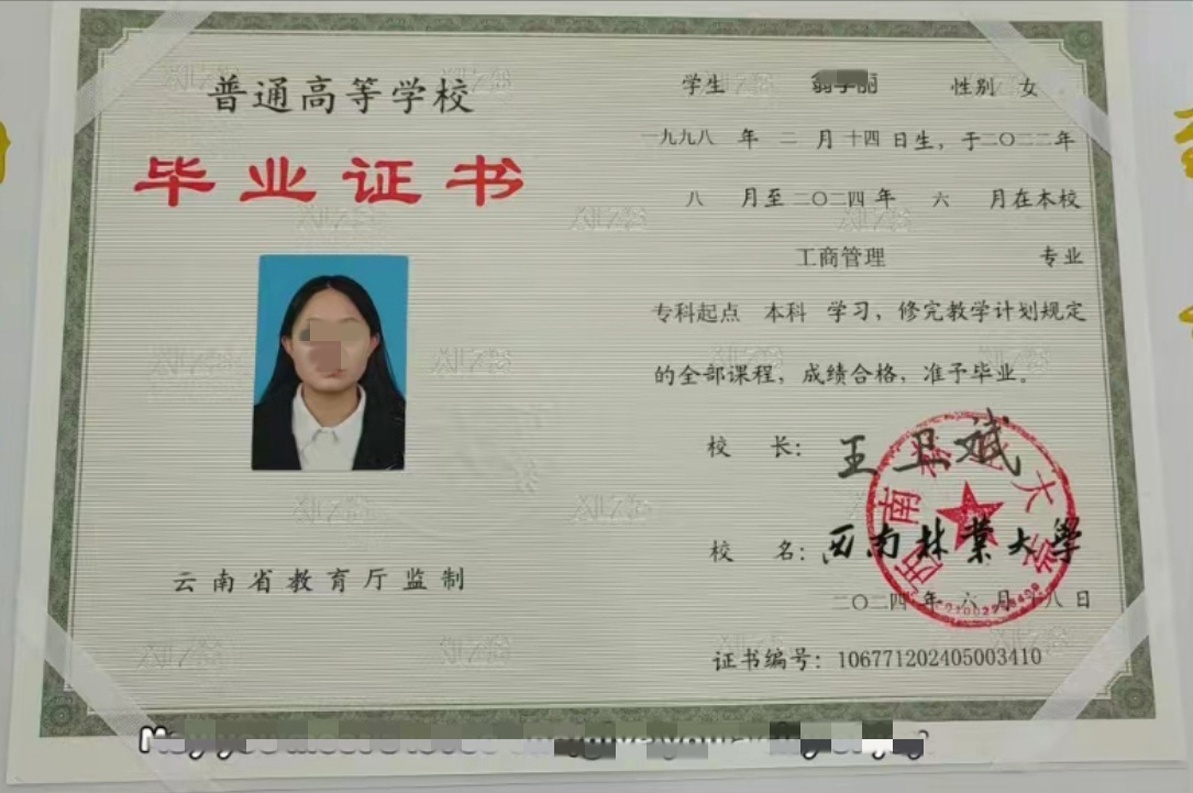 普通高等学校
毕业证书
云南省教育厅监制
学生 性别 女
一九九八 年 二 月 十四 日生，于二〇二二年
八 月至 二〇二四 年 六 月在本校
工商管理 专业
专科起点 本科 学习，修完教学计划规定
的全部课程，成绩合格，准予毕业。
校 长：王卫斌
校 名：西南林业大学
西南林业大学
二〇二四 年 六 月 十八 日
证书编号：106771202405003410